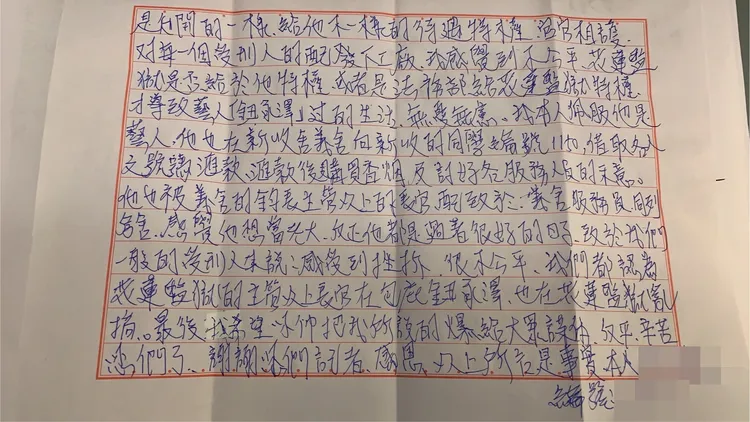 是公開的一樣、給他不一樣的待遇特權、官官相護、
對每一個受刑人的配發下工廠、我感覺到不公平、花蓮監
獄是否給於他特權、或者是法務部給花蓮監獄特權
才導致藝人「鈕承澤」過的生活、無憂無慮。我本人佩服他是
藝人、他也在新收舍義舍向新收的同學編號1110、借取名
文號碼匯款、匯款後購買香烟、反討好各服務員的來意。
他也被義舍的主管以上的長官配致於:義舍服務員、同到
名舍、感覺他想當老大、反正他都是過著很好的日子、致於我們
一般的受刑人來說、感受到挫折、很不公平、我們都認為
花蓮監獄的主管以上長官在包庇鈕承澤、也在花蓮監獄亂
搞。最後我希望你們把我所說的爆給大眾評估、公平、辛苦
你們了、謝謝你們記者、感恩、以上所言是事實本人
編號